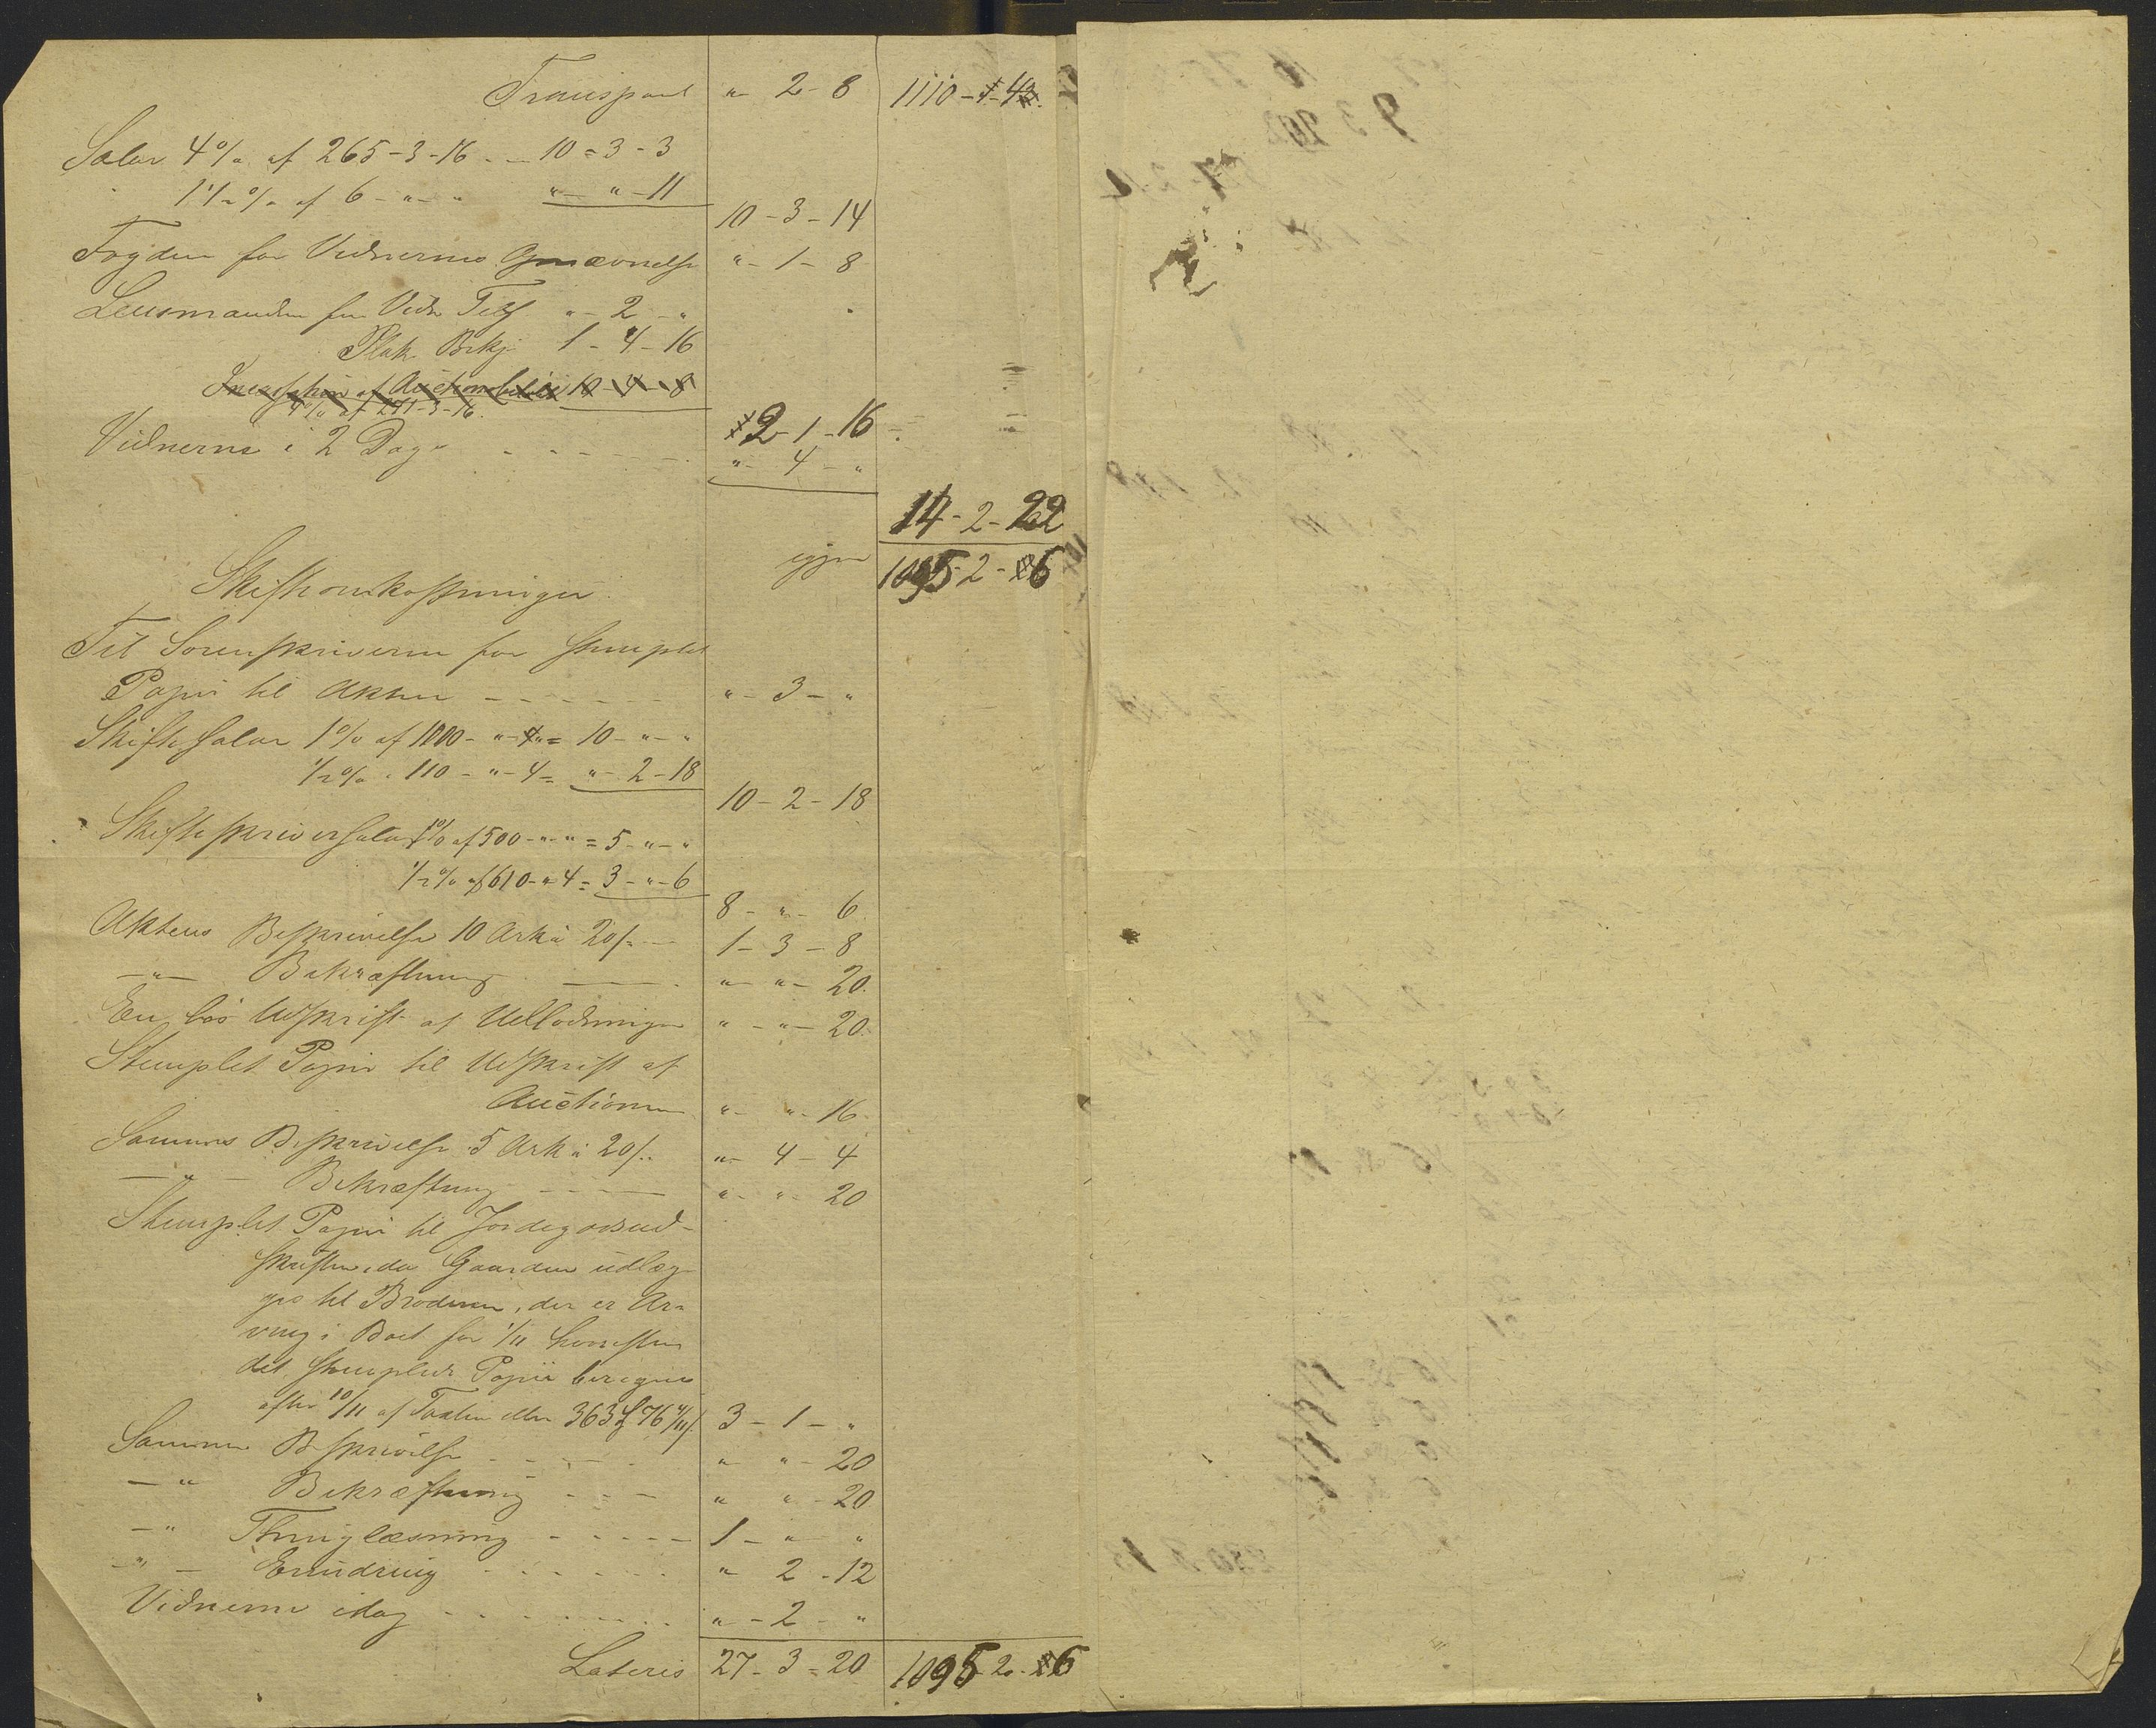 Transport " 2 - 8 1110 - " - 4
Salar 4% af 265 - 3 - 16 - - 10 = 3 - 3
1 1/2 % af 6 - " - " " - " - 11
10 - 3 - 14
Fogden for Vidnernes Opnævnelse " - 1 - 8
Lensmanden for Vidn " - 2 - "
Plak Bekj 1 - 4 - 16
Auctionen 10 - 4 - 8
4% af 271 - 3 - 16
2 - 1 - 16
Vidnerne i 2 Dage - - - - - - " - 4 - "
14 - 2 - 22
igjen 1095 - 2 - 6
Skifteomkostninger
Til Sorenskriveren for stemplet
Papir til Akten - - - - - - " - 3 - "
Skiftesalar 1% af 1000 - " - " = 10 - " - "
1/2 % " 110 - " - 4 = " - 2 - 18
10 - 2 - 18
Skifteskriversalar 1% af 500 - " - " = 5 - " - "
1/2 % af 610 - " 4 = 3 - " - 6
8 - " - 6
Aktens Beskrivelse 10 Ark à 20 s. - 1 - 3 - 8
- " - Bekræftning " - " - 20
En løs Udskrift af Udlodningen " - " - 20
Stemplet Papir til Udskrift af
Auctionen " - " - 16
Sammes Beskrivelse 5 Ark à 20 s. " - 4 - 4
- " - Bekræftning - - - - " - " - 20
Stemplet Papir til Jordegodsud-
skriften, da Gaarden udlæg-
ges til Broderen, der er Ar-
ving i Boet for 1/11 hvorefter
det stemplede Papir beregnes
efter 10/11 af Taxten eller 363 76 3 - 1 - "
Sammes Beskrivelse - - - - " " - 20
- " Bekræftning - - - " " - 20
- " Thinglæsning - - - - - 1 - " "
- " - Erindring - - - - - - " 2 - 12
Vidnerne idag - - - - - - - " - 2 - "
Lateris 27 - 3 = 20 1095 - 2 - 6